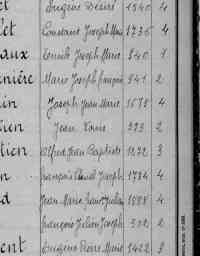 et Eugène Désiré 1540 4
et Constant Joseph Marie 1736 4
aux Emile Joseph Marie 840 1
nière Marie Joseph François 941 2
in Joseph Jean Marie 1678 4
ien Jean Louis 393 2
tien Alfred Jean Baptiste 1272 3
n François Aimé Joseph 1784 4
d Jean Marie Julien 1888 4
François Julien Joseph 302 2
ent Eugène Pierre Marie 1422 3